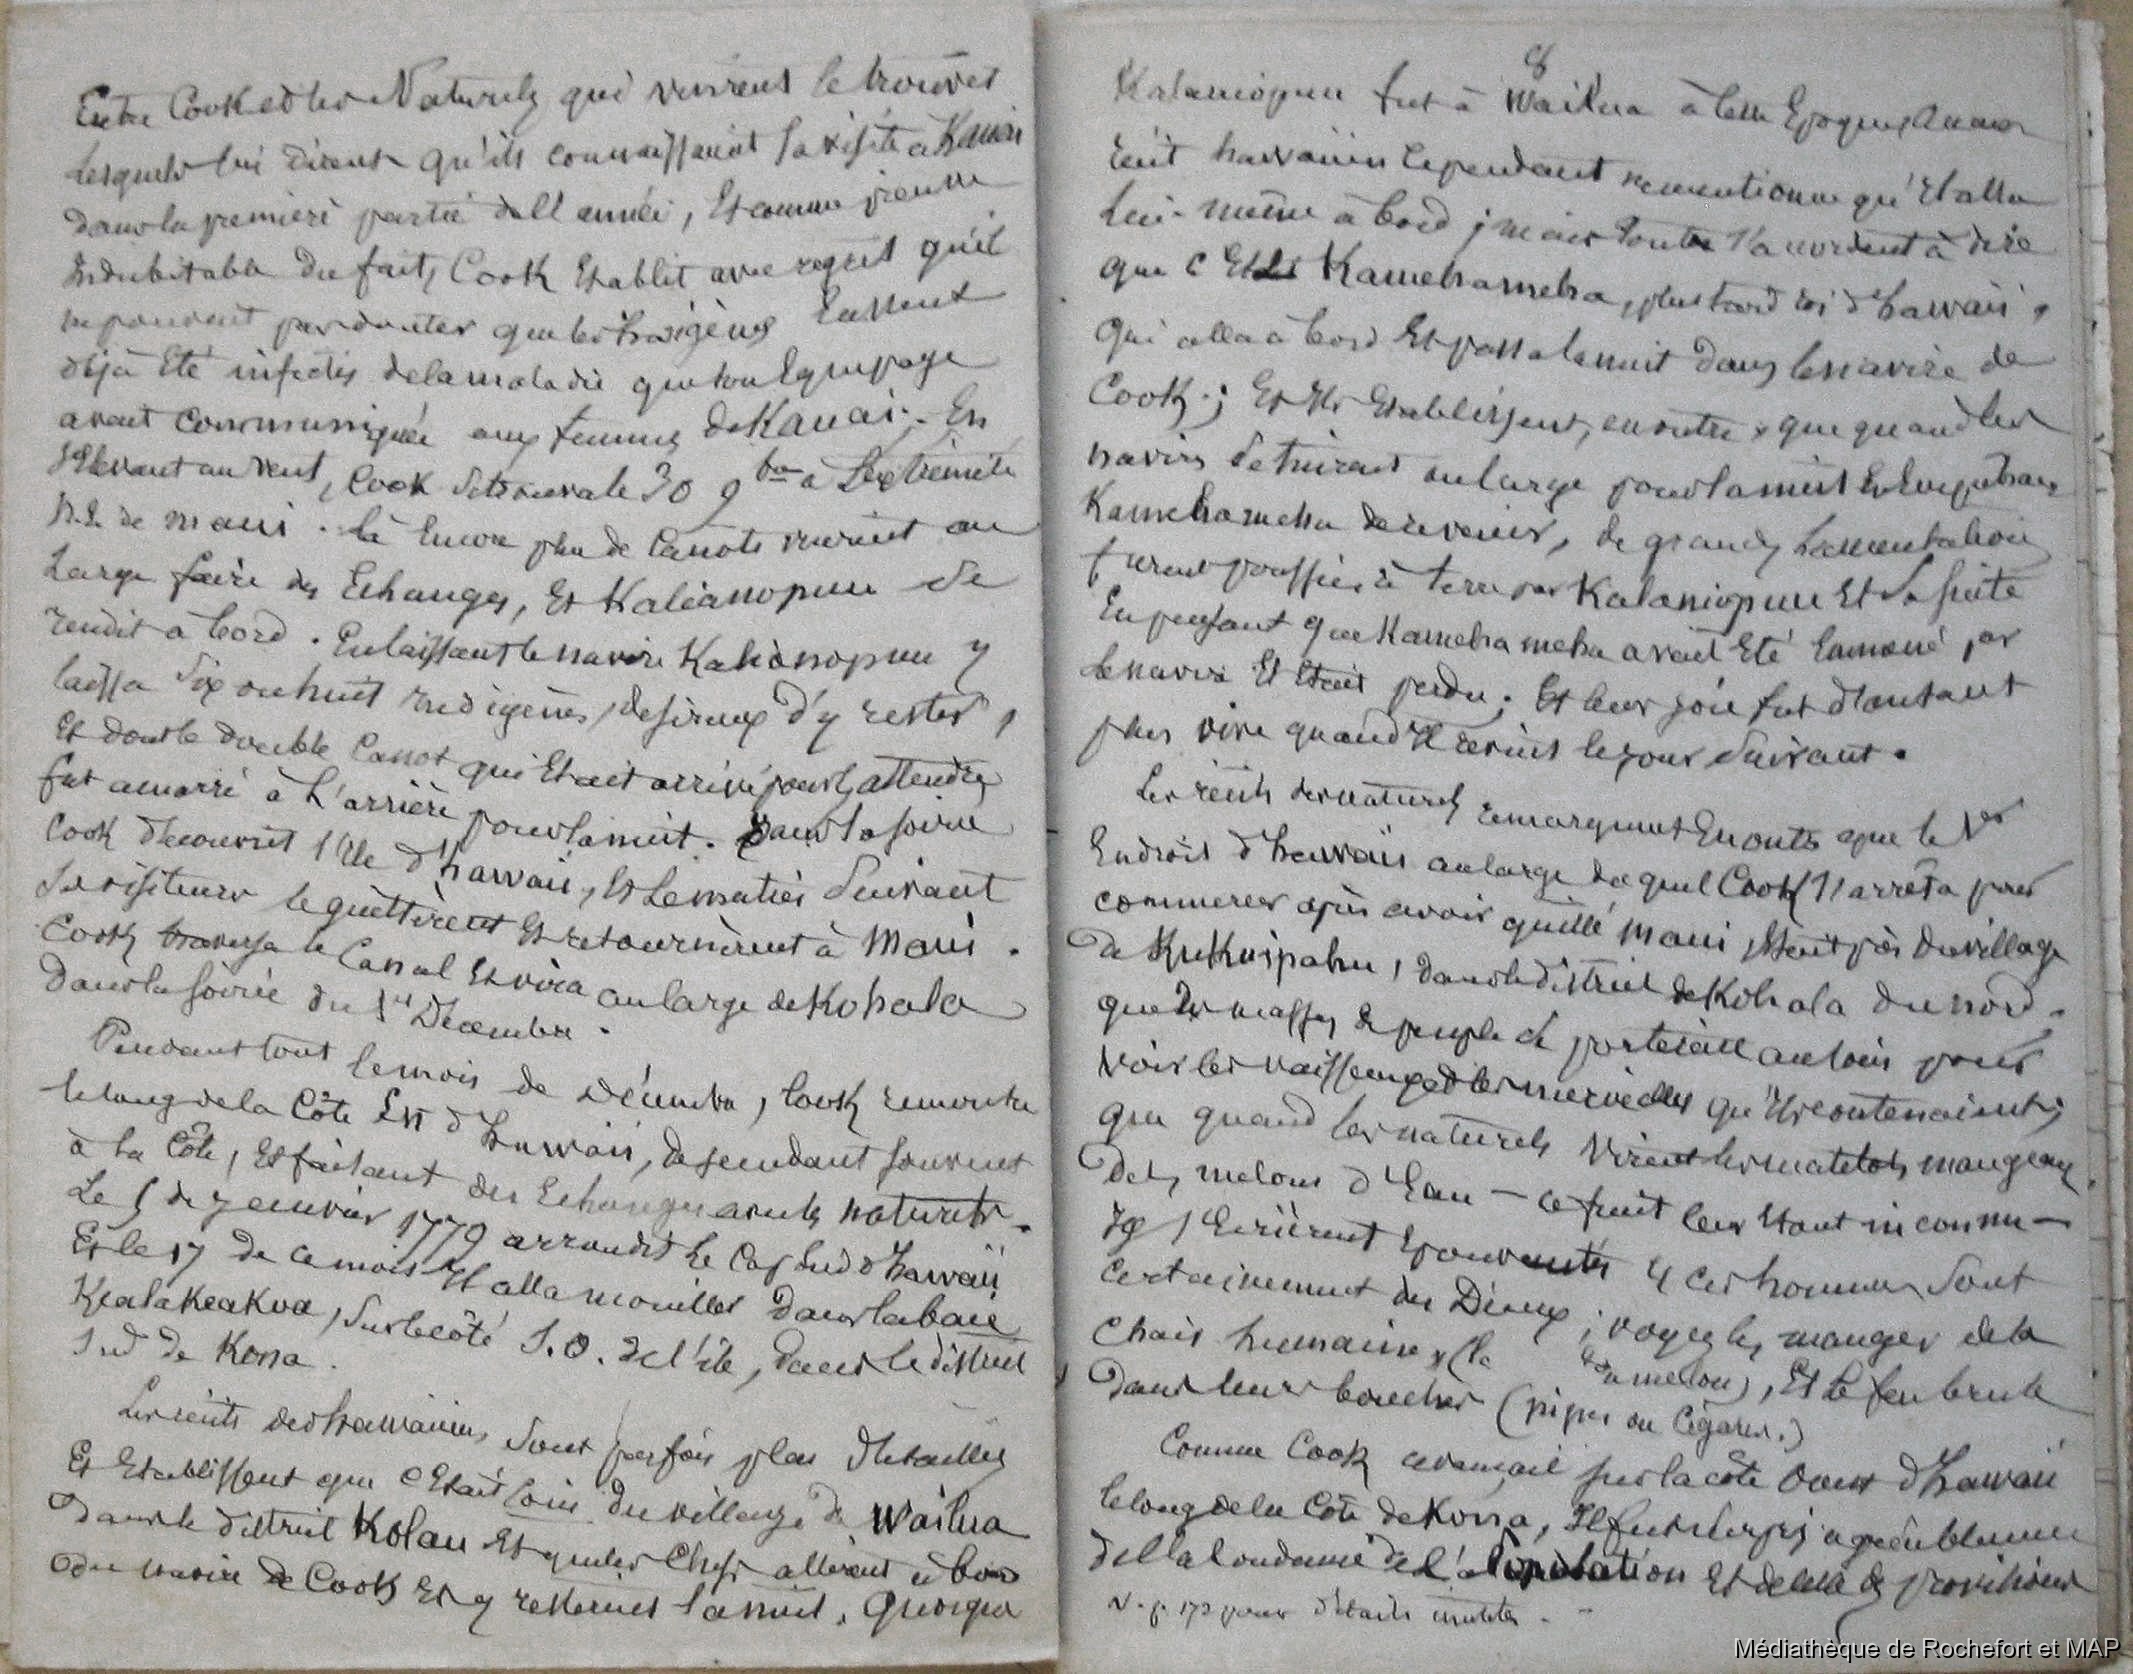 Entre Cook et les Naturels qui vinrent le trouver
lesquels lui dirent qu'ils connaissaient sa visite à Kauai
dans la première partie de l'année, Et comme preuve
indubitable du fait, Cook Etablit avec regret qu'il
ne pouvait pas douter que les Indigènes Eussent
déjà Eté infectés de la maladie que son Equipage
avait communiquée aux femmes de Kauai. En
s'Elevant au vent, Cook se trouva le 30 9bre à L'extrémité
N.E. de Maui. Là Encore plus de Canots vinrent au
Large faire des Echanges, Et Kalianopuu se
rendit à bord. En laissant le navire Kalianopuu y
laissa six ou huit Indigènes, désireux d'y rester,
Et dont le double Canot qui Etait arrivé pour les attendre
fut amarré à L'arrière pour la nuit. Dans la soirée
Cook découvrit l'Ile d'hawaii, Et Le matin Suivant
Ses visiteurs le quittèrent Et retournèrent à Maui.
Cook traversa le Canal Et vira au large de Kohala
Dans la soirée du 1er Décembre.
Pendant tout le mois de Décembre, Cook remonta
le long de la Côte Est d'Hawaii, descendant souvent
à la Côte, Et faisant des Echanges avec les naturels.
Le 5 de Janvier 1779 arrondit Le Cap Sud d'hawaii
Et le 17 de ce mois Il alla mouiller dans la baie
Kealakeakua, Sur le côté S.O. de l'île, dans le district
Sud de Kona.
Les récits des Hawaiiens, sont parfois plus détaillés
Et Etablissent que c'Etait loin du village de Wailua
Dans le district Kolau Et que les Chefs allèrent à bord
du navire de Cook Et y restèrent la nuit. Quoique
8
Kalaniopuu fut à Wailua à cette Epoque, Aucun
récit hawaiien cependant ne mentionne qu'Il alla
Lui-même à bord; mais toutes s'accordent à dire
que c'Est Kamehameha, plus tard roi d'hawaii,
qui alla à bord Et passa la nuit dans le navire de
Cook; Et Ils Etablissent, en outre, que quand les
navires se tinrent au large pour la nuit
Kamehameha de revenir, de grandes Lamentations
furent poussées à terre par Kalaniopuu Et Sa suite
En pensant que Kamehameha avait Eté Emmené par
le navire Et Etait perdu; Et leur joie fut d'autant
plus vive quand Il revint le jour Suivant.
Les récits des naturels remarquent En outre que le 1er
Endroit d'hawaii au large duquel Cook s'arrêta pour
commercer après avoir quitté Maui, Etait près du village
de Kukuipahu, dans le district de Kohala du nord;
que les masses de peuple se portèrent au loin pour
voir les vaisseaux et les merveilles qu'Ils contenaient;
que quand les naturels virent les matelots mangeant
des melons d'Eau — ce fruit leur Etant inconnu —
Ils s'Ecrièrent Epouvantés « ces hommes sont
certainement des Dieux; voyez les manger de la
Chair humaine, (le melon), Et Le feu brule
dans leurs bouches (pipes ou Cigares.)
Comme Cook avançait sur la côte Ouest d'Hawaii
le long de la Côte de Kona, Il fut surpris agréablement
de l'abondance de la population Et de celle des provisions
V. p. 172 pour détails inédits.
Médiathèque de Rochefort et MAP